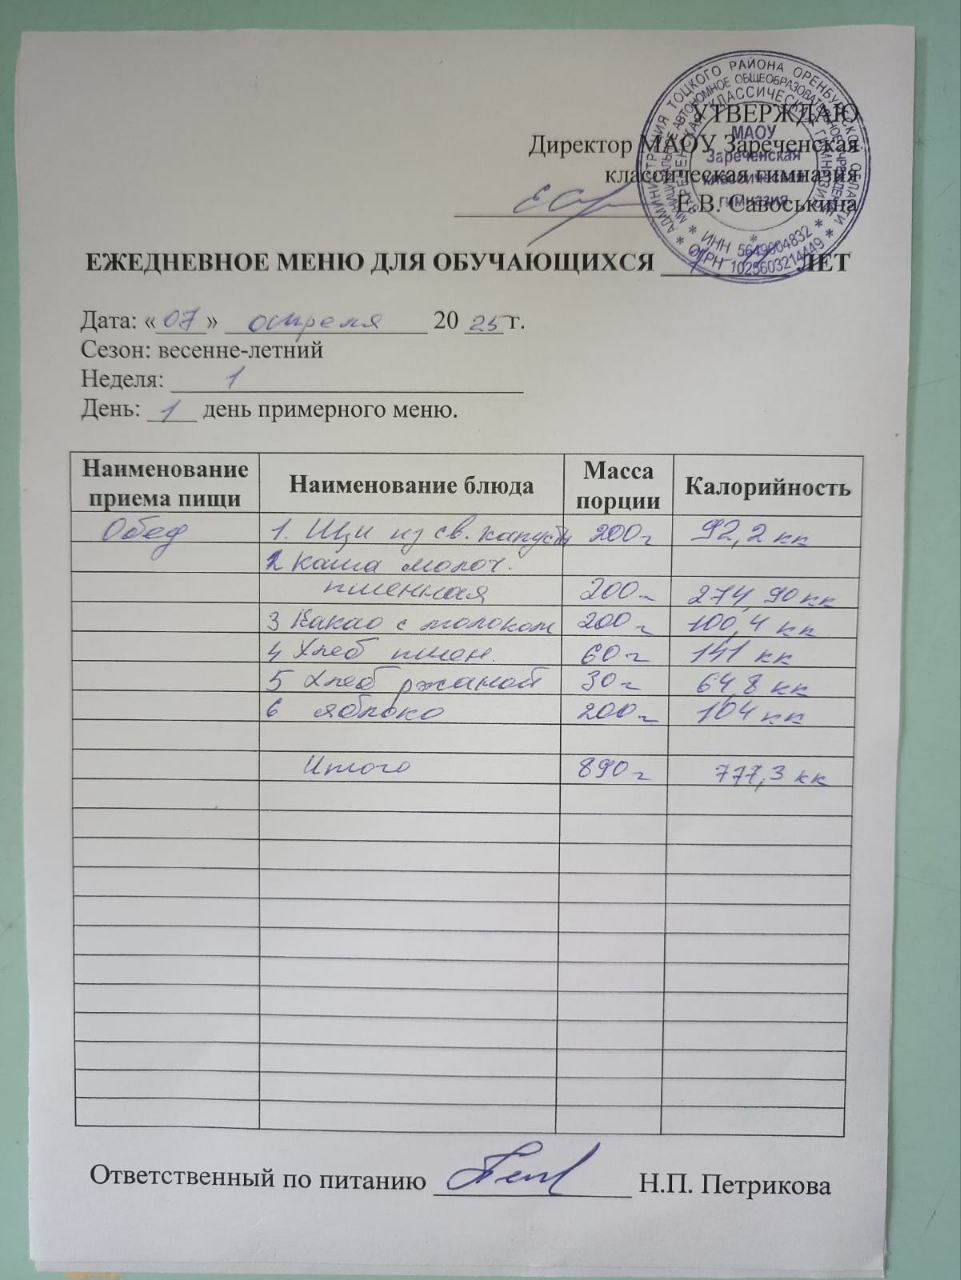 УТВЕРЖДАЮ
Директор МАОУ Зареченская
классическая гимназия
Е.В. Савоськина
МАОУ
Зареченская
классическая
гимназия
* ИНН 5649004832 *
* ОГРН 1025603214449 *
ЕЖЕДНЕВНОЕ МЕНЮ ДЛЯ ОБУЧАЮЩИХСЯ ЛЕТ
Дата: «07» апреля 20 25 г.
Сезон: весенне-летний
Неделя: 1
День: 1 день примерного меню.
Наименование приема пищи Наименование блюда Масса порции Калорийность
Обед 1. Щи из св. капусты 200 г 92,2 кк
2 Каша молоч.
пшенная 200 г 274,90 кк
3 Какао с молоком 200 г 100,4 кк
4 Хлеб пшен. 60 г 141 кк
5 Хлеб ржаной 30 г 64,8 кк
6 яблоко 200 г 104 кк
Итого 890 г 777,3 кк
Ответственный по питанию Н.П. Петрикова